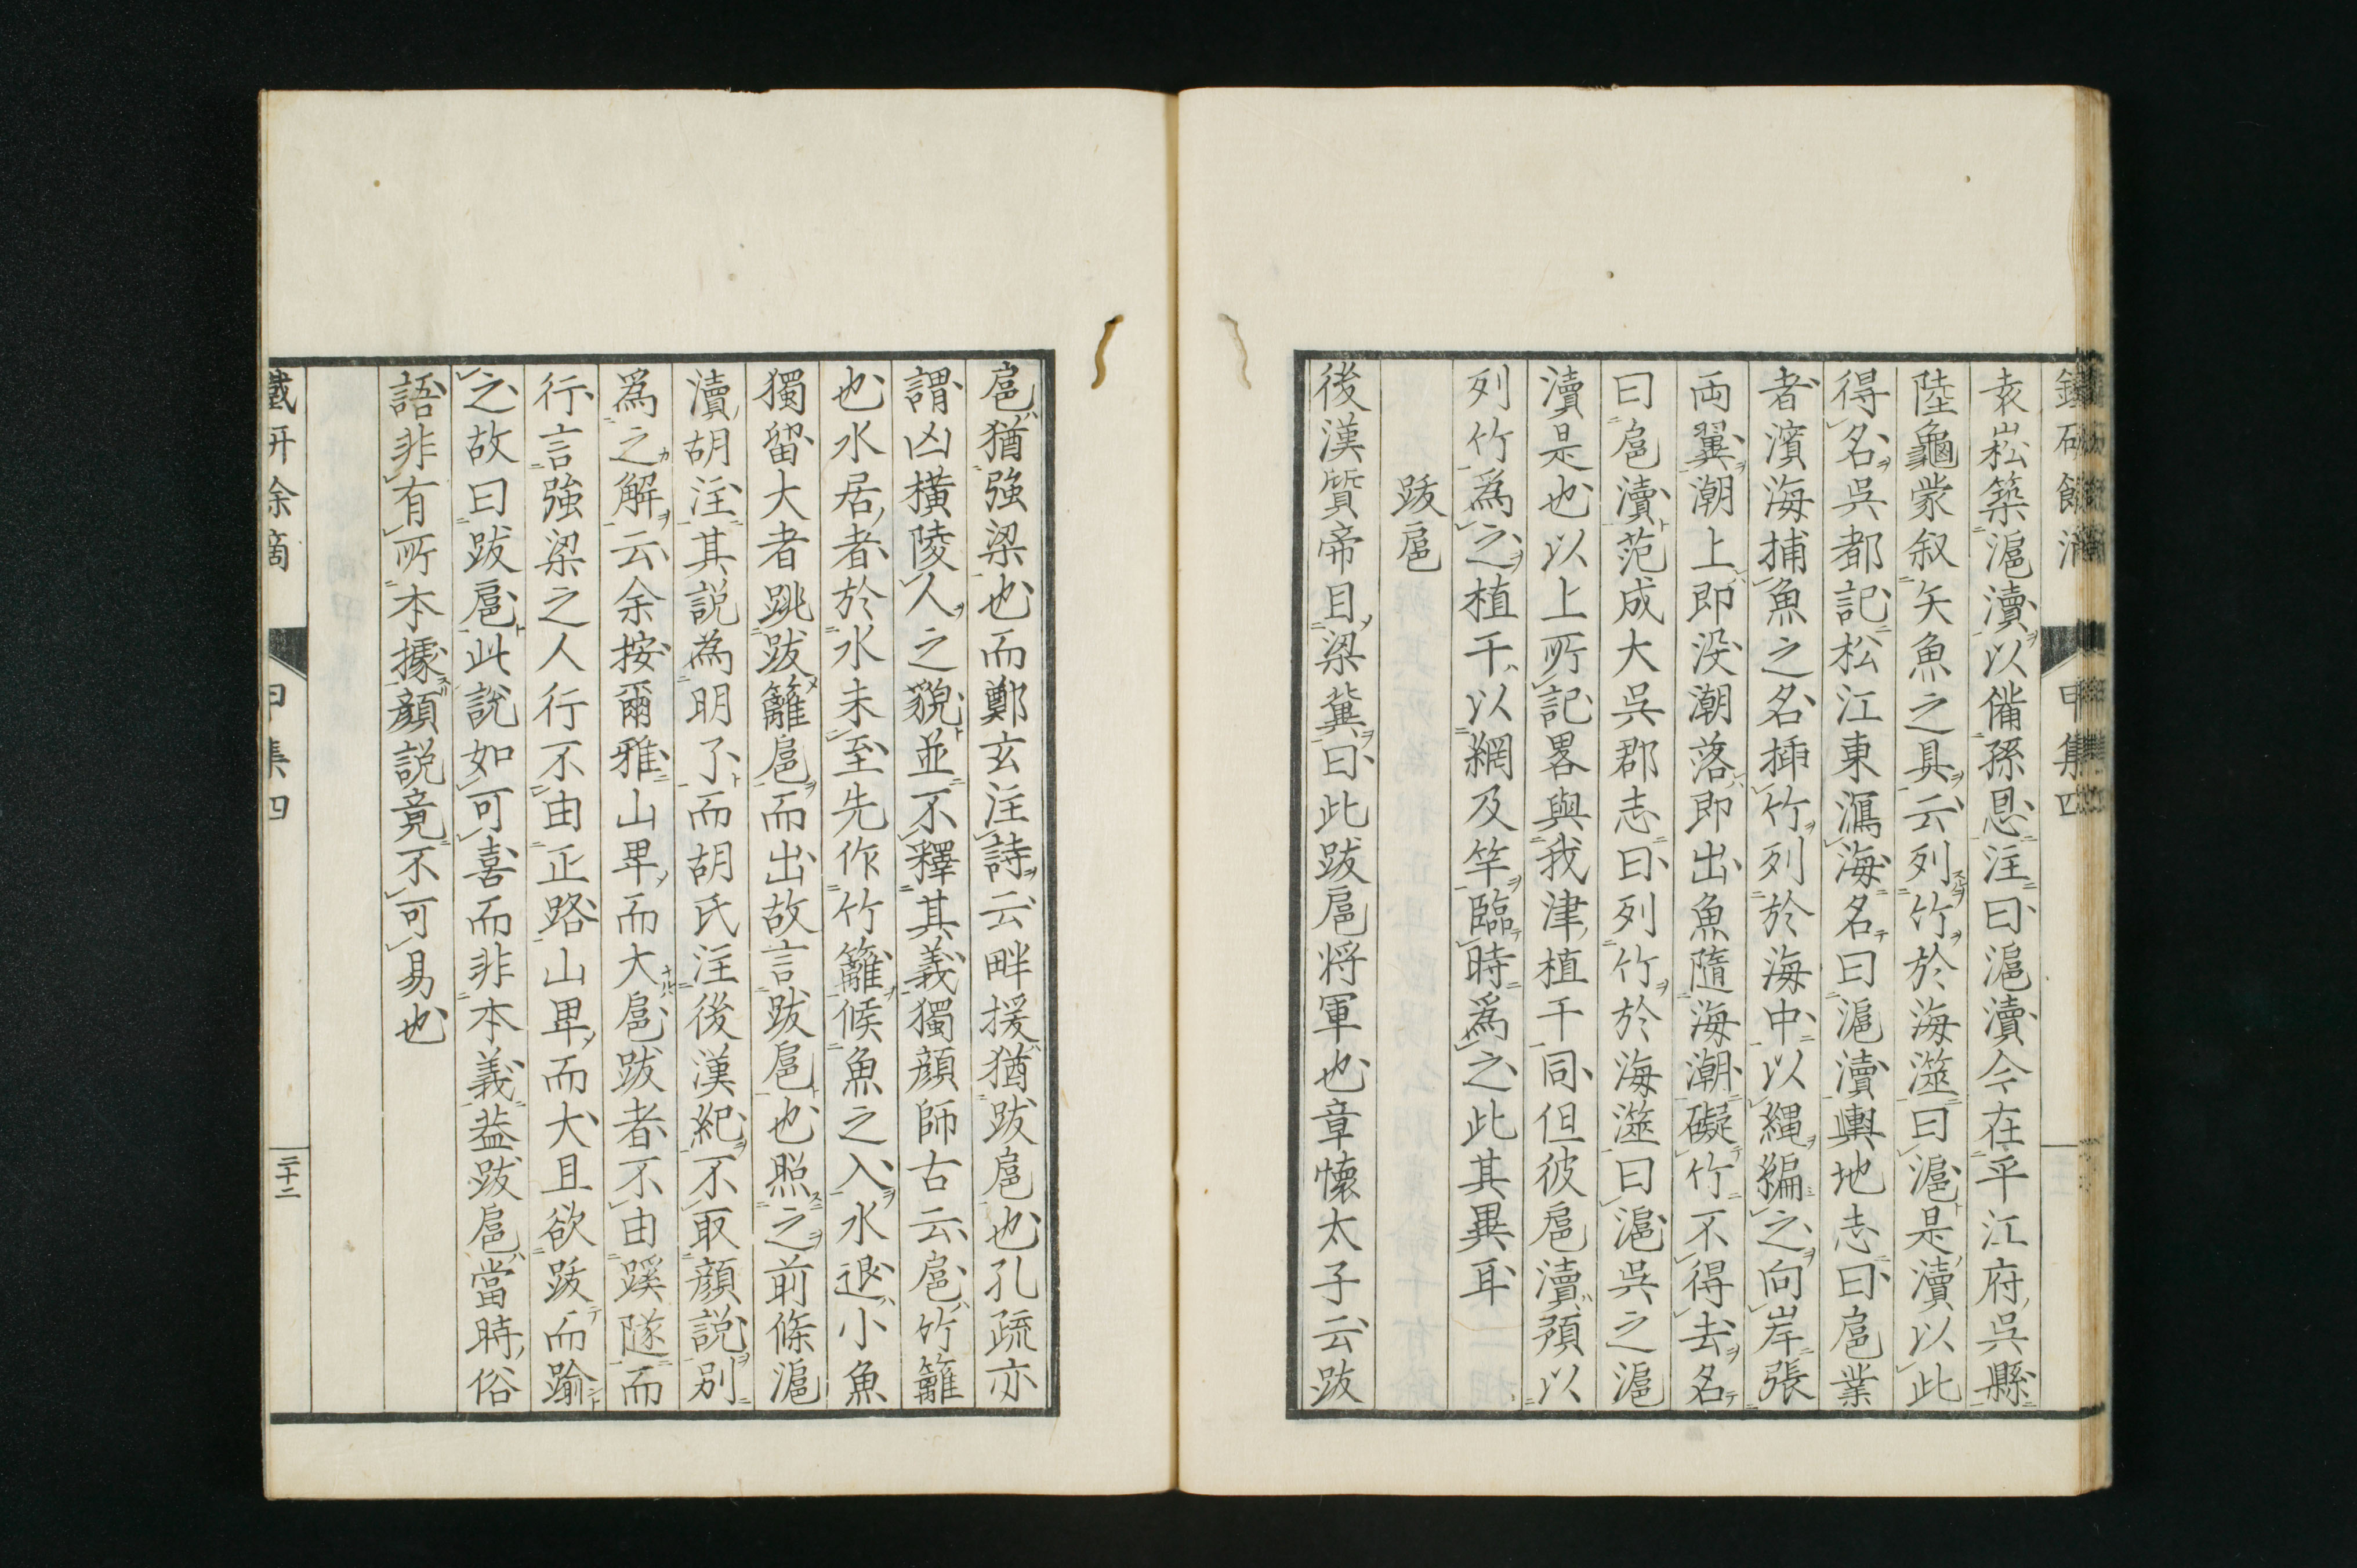 袁崧築滬瀆以備孫恩注曰滬瀆今在平江府呉縣
陸龜蒙叙矢魚之具云列竹於海澨曰滬是瀆以此
得名呉都記松江東瀉海名曰滬瀆輿地志曰扈業
者濱海捕魚之名挿竹列於海中以縄編之向岸張
両翼潮上即没潮落即出魚隨海潮礙竹不得去名
曰扈瀆范成大呉郡志曰列竹於海澨曰滬呉之滬
瀆是也以上所記畧與我津植干同但彼扈瀆預以
列竹為之植干以網及竿臨時為之此其異耳
跋扈
後漢質帝目梁冀曰此跋扈将軍也章懐太子云跋
扈猶強梁也而鄭玄注詩云畔援猶跋扈也孔疏亦
謂凶横陵人之貌並不釋其義獨顔師古云扈竹籬
也水居者於水未至先作竹籬候魚之入水退小魚
獨留大者跳跋籬扈而出故言跋扈也照之前條滬
瀆胡注其説為明了而胡氏注後漢紀不取顔説別
為之解云余按爾雅山卑而大扈跋者不由蹊隧而
行言強梁之人行不由正路山卑而大且欲跋而踰
之故曰跋扈此説如可喜而非本義葢跋扈當時俗
語非有所本據顔説竟不可易也
甲集四
二十二